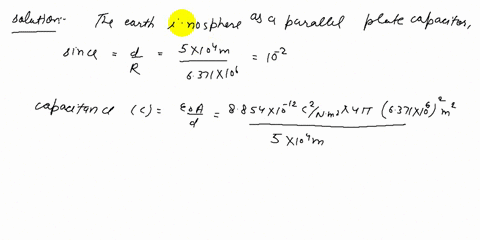 solution:- The earth i·nosphere as a parallel plate capacitor,
since = d/R = 5 × 10⁴ m / 6.371 × 10⁶ = 10⁻²
capacitance (c) = ε₀A/d = 8.854 × 10⁻¹² C²/Nm² × 4π (6.371 × 10⁶)² m² / 5 × 10⁴ m